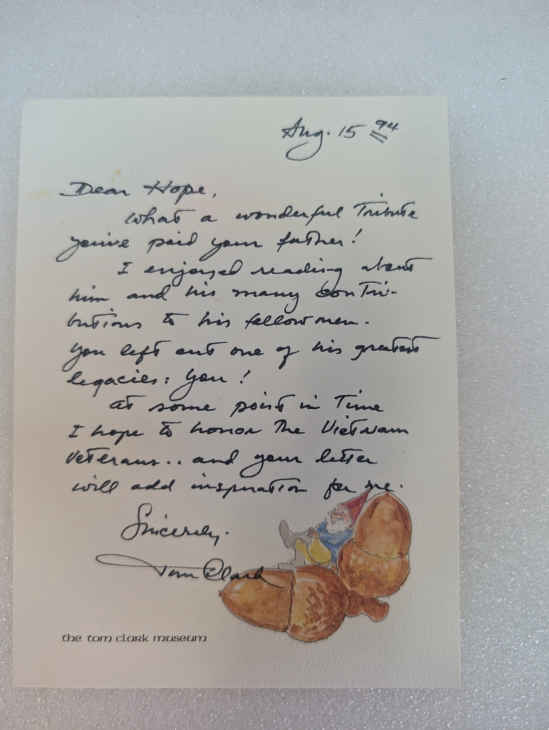 Aug. 15 94
Dear Hope,
What a wonderful Tribute
you've paid your father!
I enjoyed reading about
him and his many contri-
butions to his fellowmen.
You left out one of his greatest
legacies: You!
At some point in Time
I hope to honor the Vietnam
Veterans.. and your letter
will add inspiration for me.
Sincerely,
Tom Clark
the tom clark museum